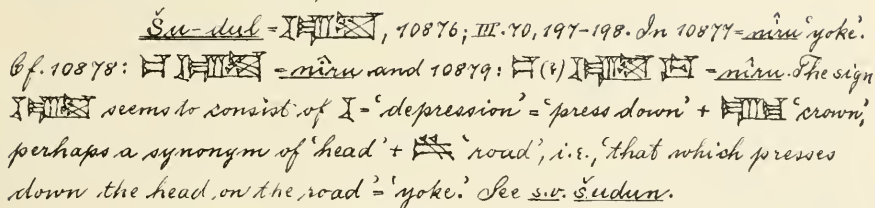 Šu-dul = , 10876; III. 70, 197-198. In 10877 = nîru 'yoke'.
Cf. 10878: = nîru and 10879: (?) = nîru. The sign
seems to consist of = 'depression' = 'press down' + 'crown',
perhaps a synonym of 'head' + 'road', i.e., 'that which presses
down the head, on the road' = 'yoke.' See s.v. šudun.